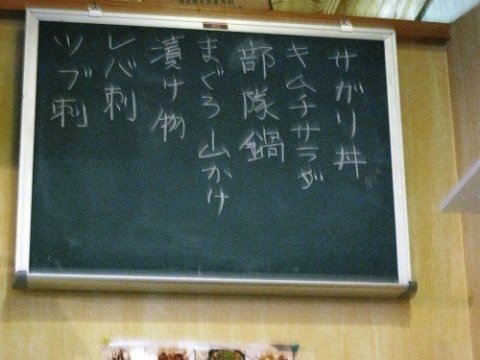 サガリ丼
キムチサラダ
部隊鍋
まぐろ山かけ
漬け物
レバ刺
ツブ刺